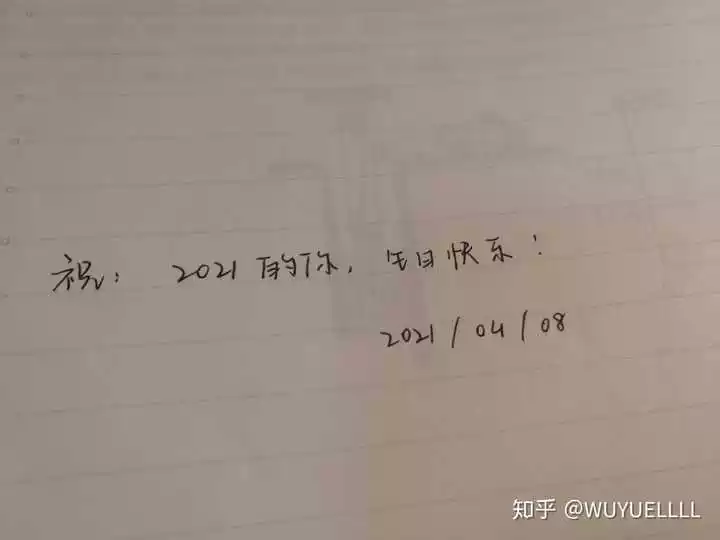 祝：2021 的你，生日快乐！
2021 / 04 / 08
知乎 @WUYUELLLL